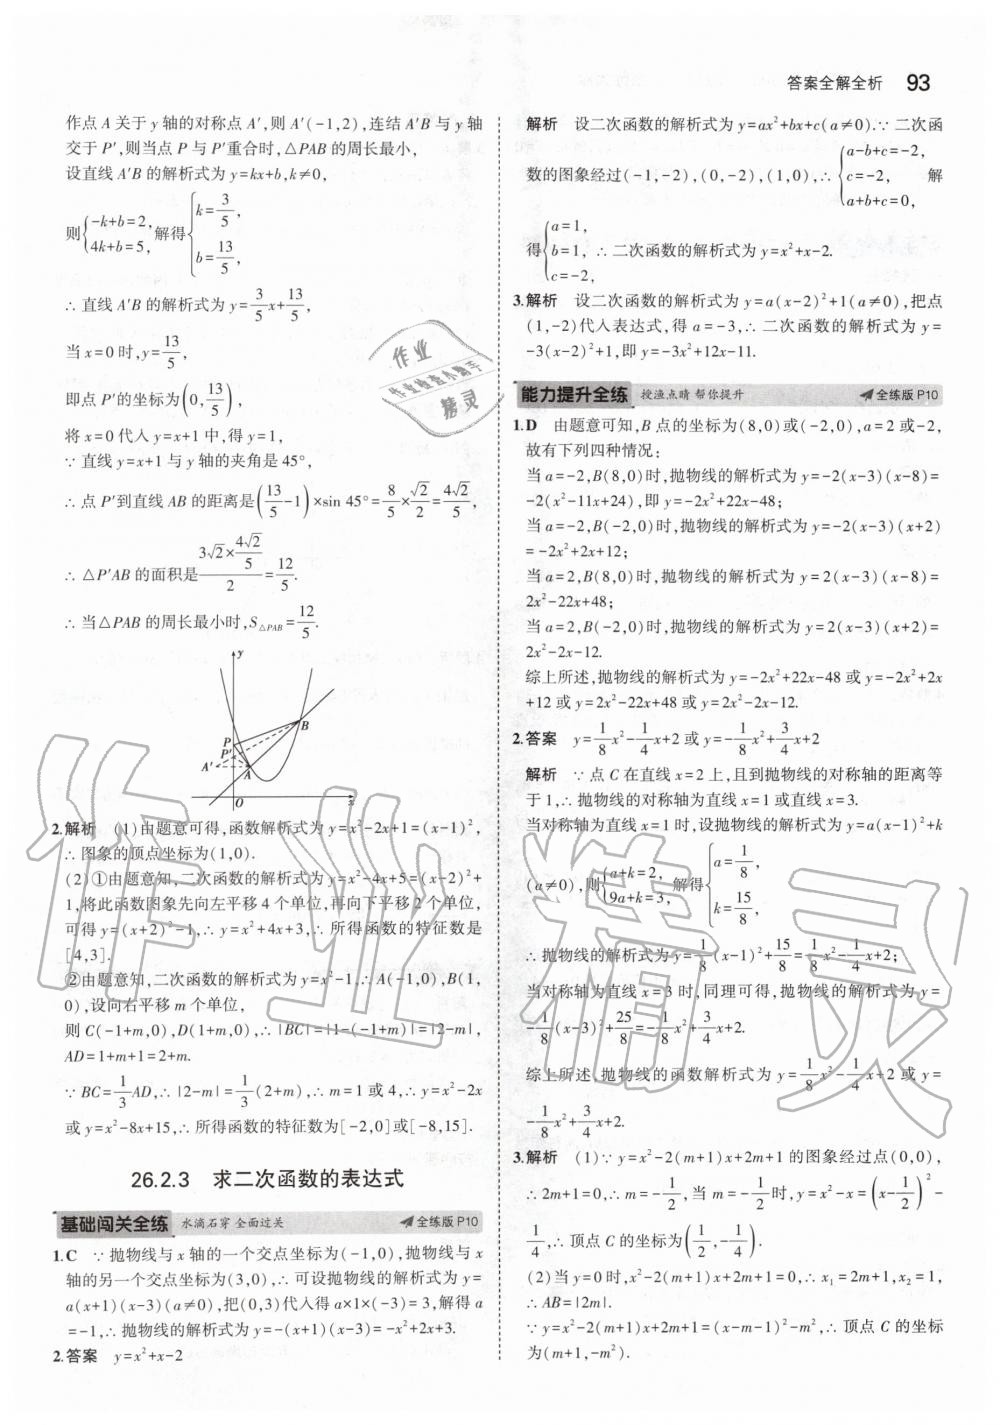 答案全解全析 93
作点 A 关于 y 轴的对称点 A′,则 A′(-1,2),连结 A′B 与 y 轴
交于 P′,则当点 P 与 P′重合时,△PAB 的周长最小,
设直线 A′B 的解析式为 y=kx+b,k≠0,
则{-k+b=2, 4k+b=5, 解得{k=3/5, b=13/5,
∴ 直线 A′B 的解析式为 y=3/5x+13/5,
当 x=0 时,y=13/5,
即点 P′的坐标为(0,13/5),
将 x=0 代入 y=x+1 中,得 y=1,
∵ 直线 y=x+1 与 y 轴的夹角是 45°,
∴ 点 P′到直线 AB 的距离是(13/5-1)×sin 45°=8/5×√2/2=4√2/5,
∴ △P′AB 的面积是(3√2×4√2/5)/2=12/5,
∴ 当△PAB 的周长最小时,S△PAB=12/5.
y
P
P′
A′
A
B
O
x
2.解析 (1)由题意可得,函数解析式为 y=x²-2x+1=(x-1)²,
∴ 图象的顶点坐标为(1,0).
(2)①由题意知,二次函数的解析式为 y=x²-4x+5=(x-2)²+
1,将此函数图象先向左平移 4 个单位,再向下平移 2 个单位,
可得 y=(x+2)²-1,∴ y=x²+4x+3,∴ 所得函数的特征数是
[4,3].
②由题意知,二次函数的解析式为 y=x²-1,∴ A(-1,0),B(1,
0),设向右平移 m 个单位,
则 C(-1+m,0),D(1+m,0),∴ |BC|=|1-(-1+m)|=|2-m|,
AD=1+m+1=2+m.
∵ BC=1/3AD,∴ |2-m|=1/3(2+m),∴ m=1 或 4,∴ y=x²-2x
或 y=x²-8x+15,∴ 所得函数的特征数为[-2,0]或[-8,15].
26.2.3 求二次函数的表达式
基础闯关全练 水滴石穿 全面过关 全练版 P10
1.C ∵ 抛物线与 x 轴的一个交点坐标为(-1,0),抛物线与 x
轴的另一个交点坐标为(3,0),∴ 可设抛物线的解析式为 y=
a(x+1)(x-3)(a≠0),把(0,3)代入得 a×1×(-3)=3,解得 a
=-1,∴ 抛物线的解析式为 y=-(x+1)(x-3)=-x²+2x+3.
2.答案 y=x²+x-2
解析 设二次函数的解析式为 y=ax²+bx+c(a≠0).∵ 二次函
数的图象经过(-1,-2),(0,-2),(1,0),∴ {a-b+c=-2, c=-2, a+b+c=0, 解
得{a=1, b=1, c=-2, ∴ 二次函数的解析式为 y=x²+x-2.
3.解析 设二次函数的解析式为 y=a(x-2)²+1(a≠0),把点
(1,-2)代入表达式,得 a=-3,∴ 二次函数的解析式为 y=
-3(x-2)²+1,即 y=-3x²+12x-11.
能力提升全练 授渔点睛 帮你提升 全练版 P10
1.D 由题意可知,B 点的坐标为(8,0)或(-2,0),a=2 或-2,
故有下列四种情况:
当 a=-2,B(8,0)时,抛物线的解析式为 y=-2(x-3)(x-8)=
-2(x²-11x+24),即 y=-2x²+22x-48;
当 a=-2,B(-2,0)时,抛物线的解析式为 y=-2(x-3)(x+2)
=-2x²+2x+12;
当 a=2,B(8,0)时,抛物线的解析式为 y=2(x-3)(x-8)=
2x²-22x+48;
当 a=2,B(-2,0)时,抛物线的解析式为 y=2(x-3)(x+2)=
2x²-2x-12.
综上所述,抛物线的解析式为 y=-2x²+22x-48 或 y=-2x²+2x
+12 或 y=2x²-22x+48 或 y=2x²-2x-12.
2.答案 y=1/8x²-1/4x+2 或 y=-1/8x²+3/4x+2
解析 ∵ 点 C 在直线 x=2 上,且到抛物线的对称轴的距离等
于 1,∴ 抛物线的对称轴为直线 x=1 或直线 x=3.
当对称轴为直线 x=1 时,设抛物线的解析式为 y=a(x-1)²+k
(a≠0),则{a+k=2, 9a+k=3, 解得{a=1/8, k=15/8,
∴ 抛物线的解析式为 y=1/8(x-1)²+15/8=1/8x²-1/4x+2;
当对称轴为直线 x=3 时,同理可得,抛物线的解析式为 y=
-1/8(x-3)²+25/8=-1/8x²+3/4x+2.
综上所述,抛物线的函数解析式为 y=1/8x²-1/4x+2 或 y=
-1/8x²+3/4x+2.
3.解析 (1)∵ y=x²-2(m+1)x+2m+1 的图象经过点(0,0),
∴ 2m+1=0,∴ m=-1/2,当 m=-1/2时,y=x²-x=(x-1/2)²-
1/4,∴ 顶点 C 的坐标为(1/2,-1/4).
(2)当 y=0 时,x²-2(m+1)x+2m+1=0,∴ x₁=2m+1,x₂=1,
∴ AB=|2m|.
∵ y=x²-2(m+1)x+2m+1=(x-m-1)²-m²,∴ 顶点 C 的坐标
为(m+1,-m²).
作业精灵